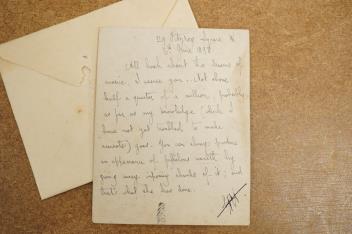 29 Fitzroy Square W
6th June 1898
All bosh about the dream of
I assure you. Not above
half a quarter of a million, probably
as far as my knowledge (which I
have not yet troubled to make
accurate) goes. You can always produce
an appearance of fabulous wealth by
giving away imposing chunks of it; and
that's what she has done.